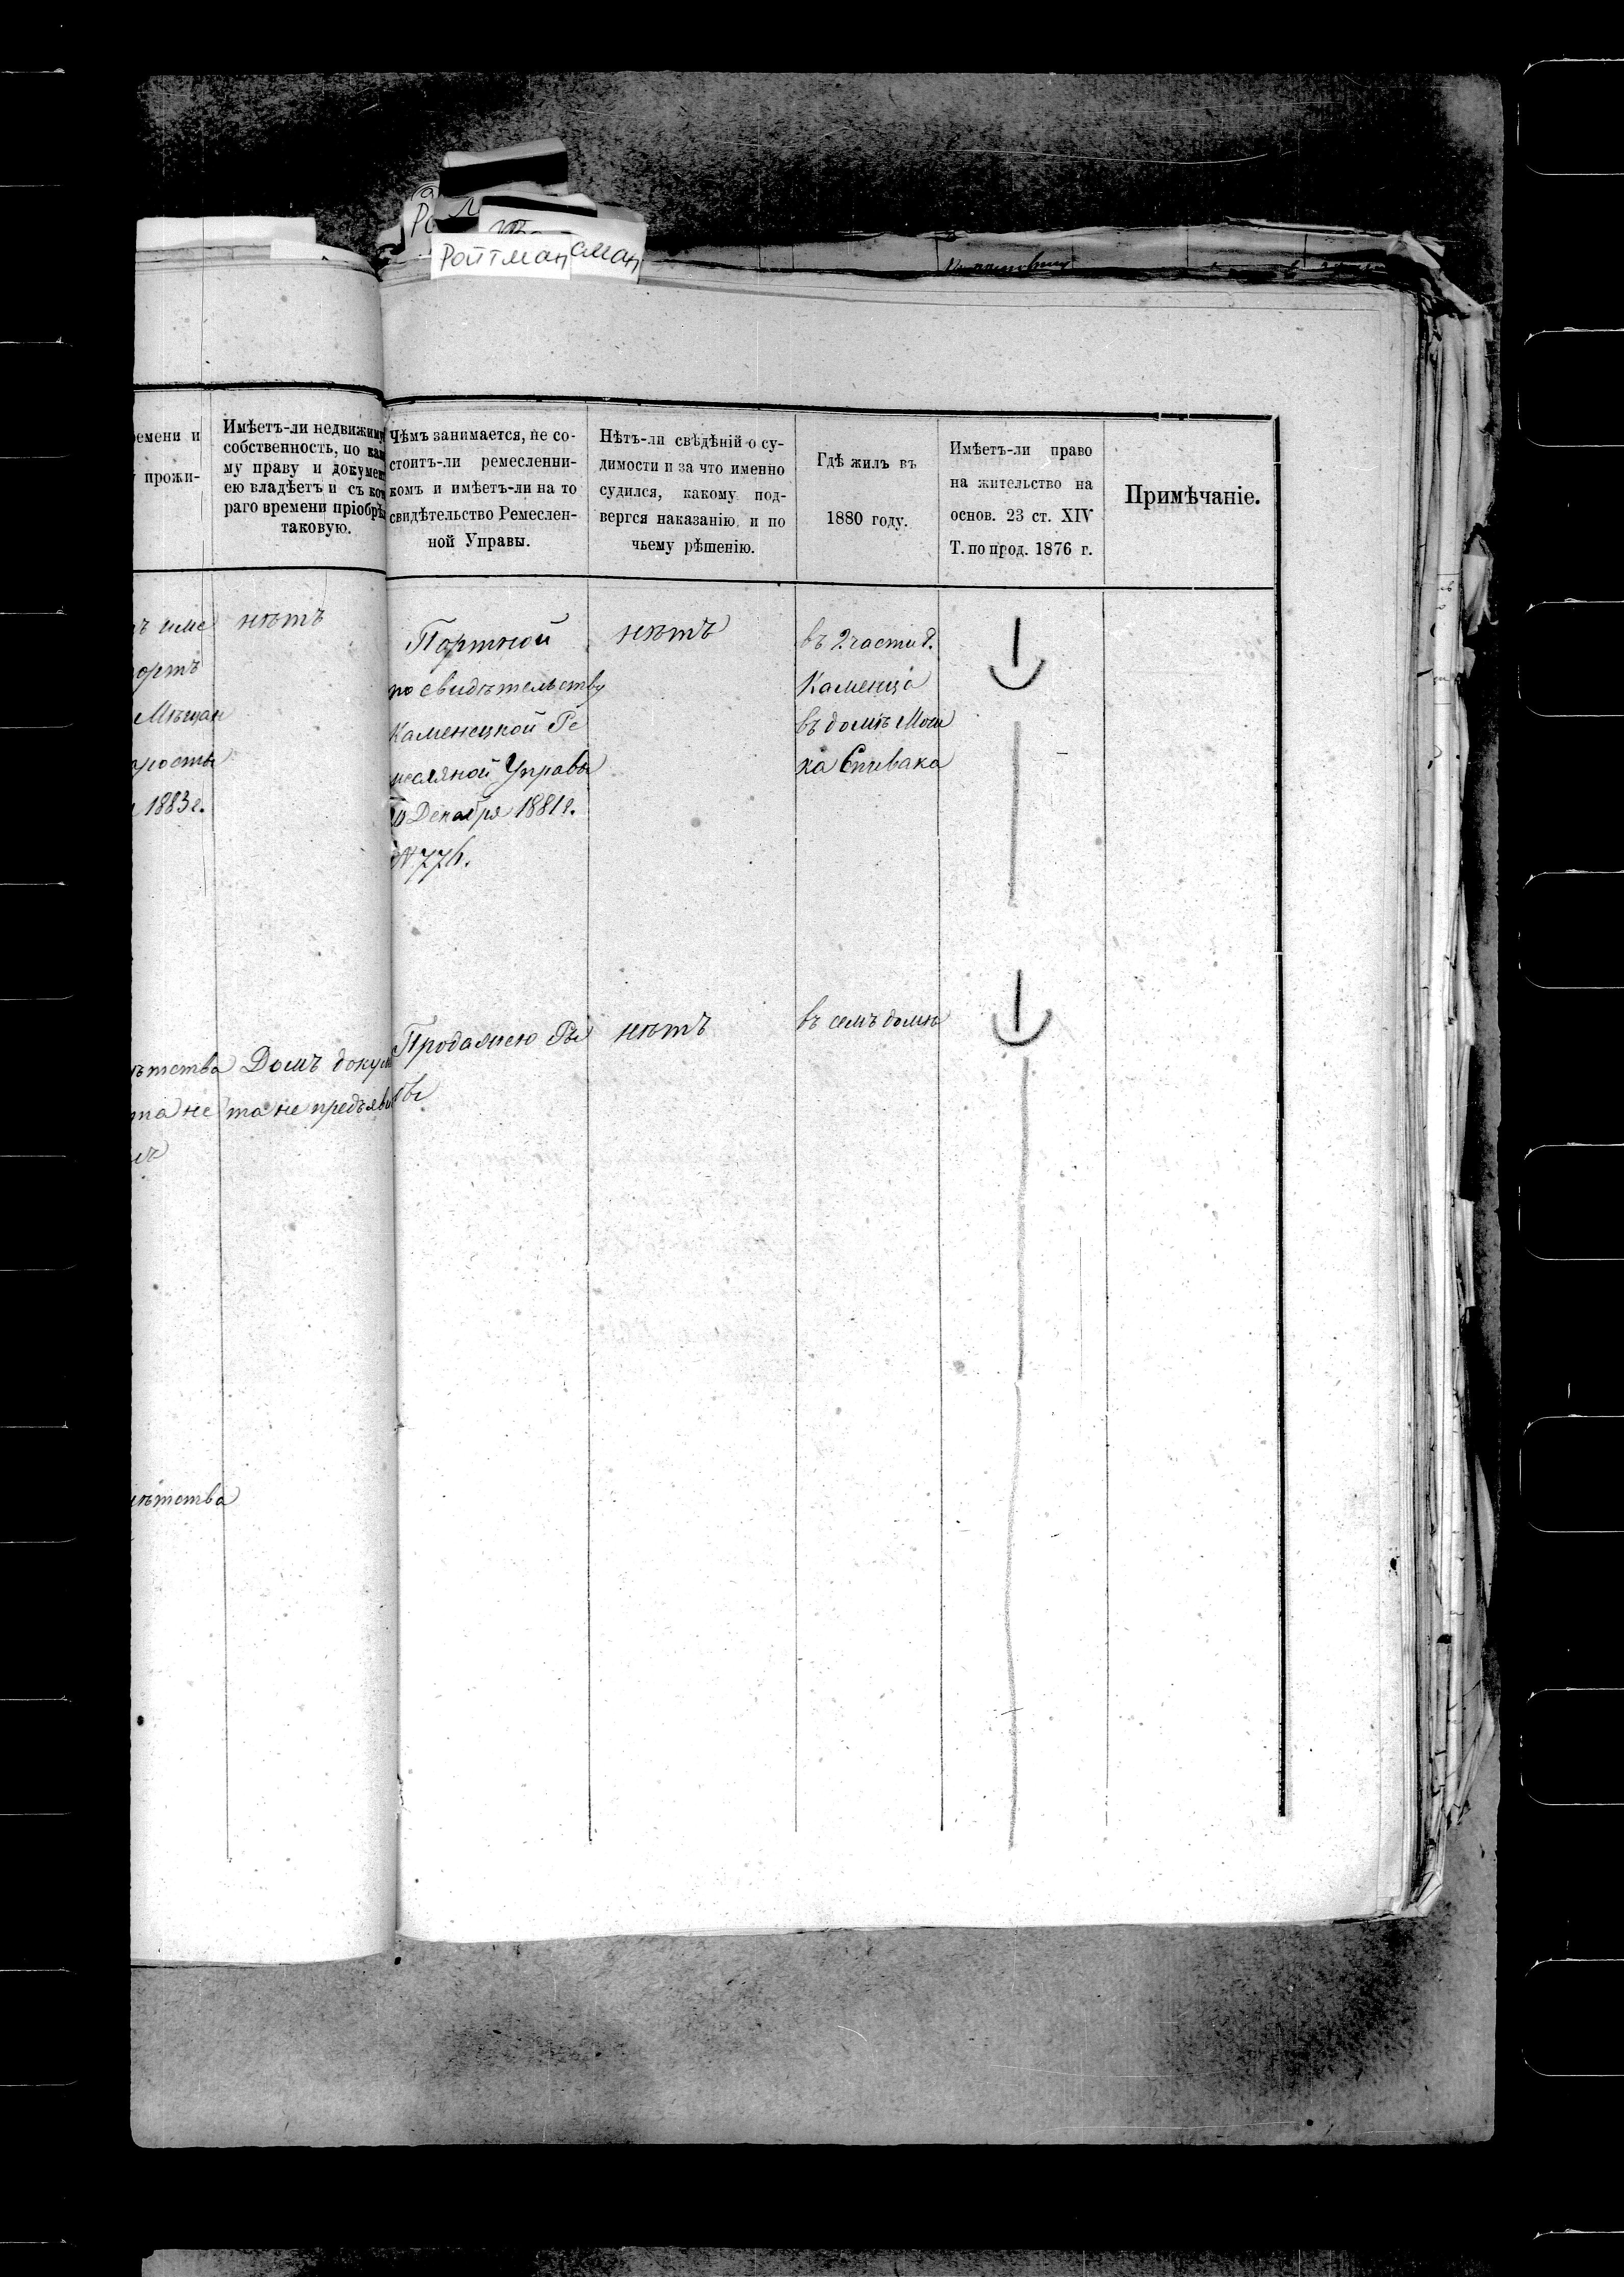 Ройтман
сман
ремени и
прожи-
Имѣетъ-ли недвижиму
собственность, по как
му праву и докумен
ею владѣетъ и съ кот
раго времени пріобрѣ
таковую.
Чѣмъ занимается, не со-
стоитъ-ли ремесленни-
комъ и имѣетъ-ли на то
свидѣтельство Ремеслен-
ной Управы.
Нѣтъ-ли свѣдѣній о су-
димости и за что именно
судился, какому под-
вергся наказанію и по
чьему рѣшенію.
Гдѣ жилъ въ
1880 году.
Имѣетъ-ли право
на жительство на
основ. 23 ст. XIV
Т. по прод. 1876 г.
Примѣчаніе.
ортъ
Мѣщан
1883 г.
нѣтъ
Портной
по свидѣтельству
Каменецкой Ре
месляной Управы
10 Декабря 1881 г.
№ 776.
нѣтъ
въ 2 части г.
Каменца
въ домѣ Мош
ка Спивака
ѣтства
та не
Домъ докум
та не предъяви
Продажею Ры
бы
нѣтъ
въ семъ домѣ
ѣтства